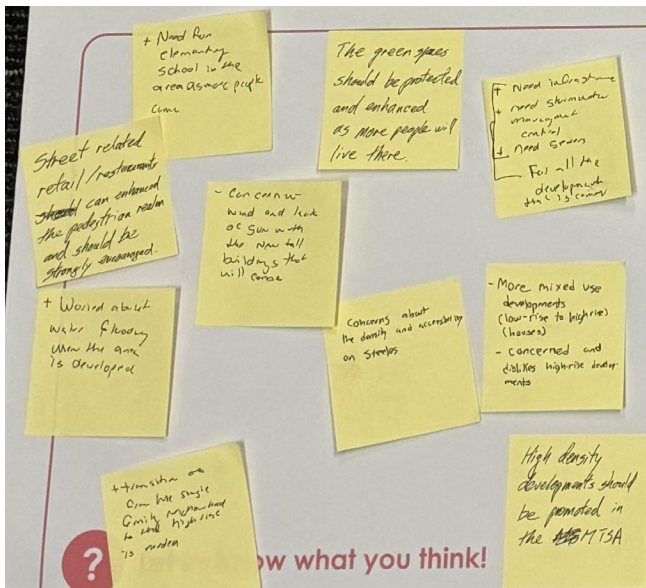 + Need for
elementary
school in the
area as more people
come
The green spaces
should be protected
and enhanced
as more people will
live there.
+ Need infrastructure
+ need stormwater
management
control
+ Need sewers
For all the
development
that is coming
Street related
retail/restaurants
can enhanced
the pedestrian realm
and should be
strongly encouraged.
- Concern w
wind and lack
of sun with
the new tall
buildings that
will come
+ Worried about
water flooding
when the area
is developed
Concerns about
the density and accessibility
on Steeles
- More mixed use
developments
(low-rise to highrise)
(houses)
- concerned and
dislikes high-rise develop-
ments
+ transition
single
family
to high rise
is needed
High density
developments should
be promoted in
the MTSA
?
ow what you think!